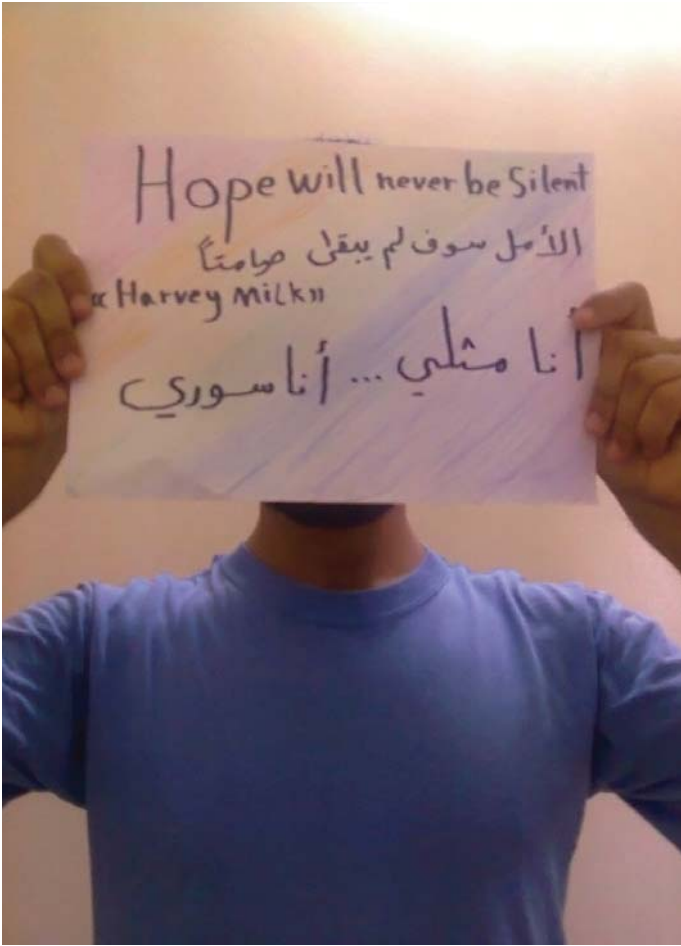 Hope will never be Silent
الأمل سوف لم يبقى صامتاً
«Harvey Milk»
أنا مثلي ... أنا سوري